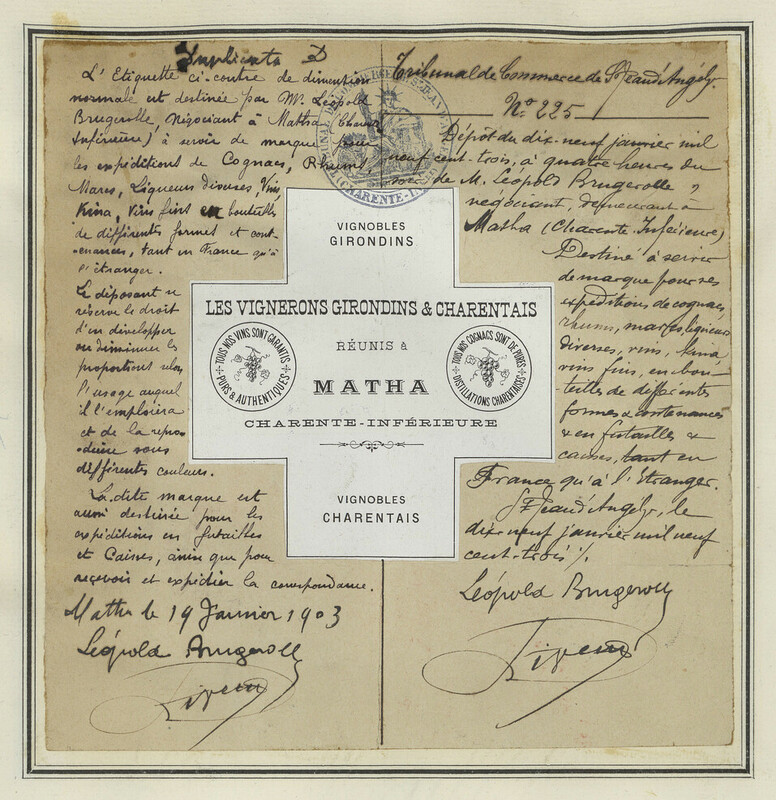 Duplicata D
L'Etiquette ci-contre de dimension
normale est destinée par Mr. Léopold
Brugerolle, Négociant à Matha (Charte
Inférieure) à servir de marque pour
les expéditions de Cognacs, Rhums,
Marcs, Liqueurs diverses, Vins,
Kina, Vins fins en bouteilles
de différentes formes et cont-
enances, tant en France qu'à
l'étranger.
Le déposant se
réserve le droit
d'en développer
ou diminuer les
proportions selon
l'usage auquel
il l'emploiera
et de la repro-
duire sous
différents couleurs.
La dite marque est
aussi destinée pour les
expéditions en futailles
et Caisses, ainsi que pour
recevoir et expédier la correspondance.
Matha le 19 Janvier 1903
Léopold Brugerolle
Tribunal de Commerce de St Jean d'Angély.
No 225
Dépôt du dix-neuf janvier mil
neuf cent-trois, à quatre heures du
soir de M. Léopold Brugerolle,
négociant, demeurant à
Matha (Charente Inférieure)
Destiné à servir
de marque pour ses
expéditions de cognacs,
rhums, marcs, liqueurs
diverses, vins, kina,
vins fins, en bou-
teilles de différentes
formes & contenances
& en futailles &
caisses, tant en
France qu'à l'Etranger.
St Jean d'Angély, le
dix neuf janvier mil neuf
cent-trois /.
Léopold Brugerolle
VIGNOBLES
GIRONDINS
LES VIGNERONS GIRONDINS & CHARENTAIS
RÉUNIS à
MATHA
CHARENTE-INFÉRIEURE
TOUS NOS VINS SONT GARANTIS
PURS & AUTHENTIQUES
TOUS NOS COGNACS SONT DE PURES
DISTILLATIONS CHARENTAISES
VIGNOBLES
CHARENTAIS